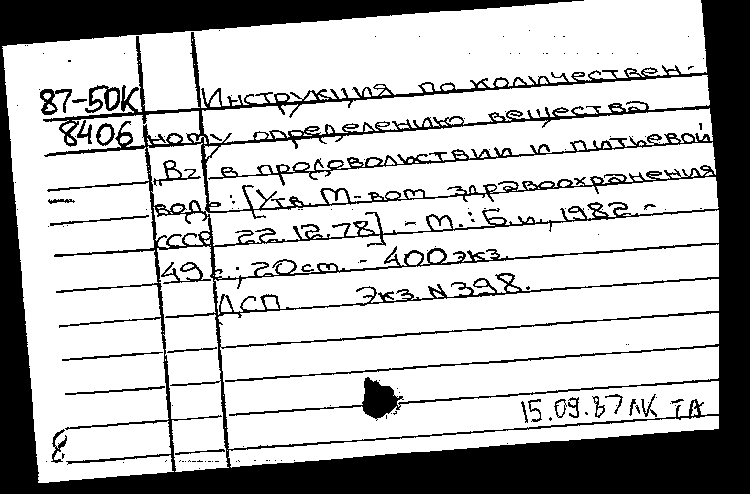 87-50К Инструкция по количествен-
8406 ному определению вещества
„Вг в продовольствии и питьевой
воде: [Утв. М-вом здравоохранения
СССР 22.12.78]. - М.: Б.и., 1982.-
49 с.; 20 см. - 400 экз.
ДСП. Экз. N 398.
15.09.87 ЛК ТА
8